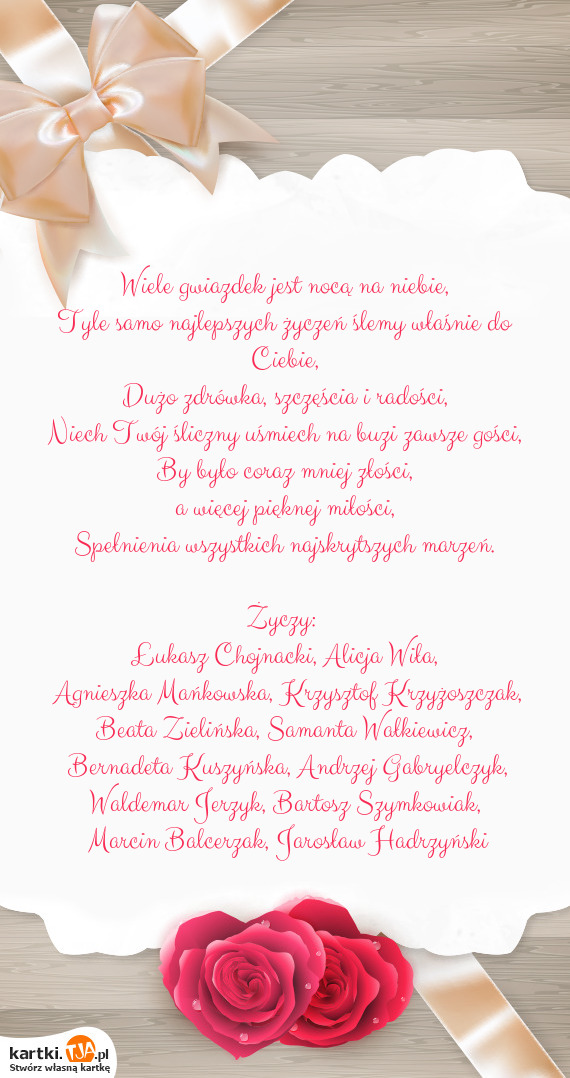 Wiele gwiazdek jest nocą na niebie,
Tyle samo najlepszych życzeń ślemy właśnie do
Ciebie,
Dużo zdrówka, szczęścia i radości,
Niech Twój śliczny uśmiech na buzi zawsze gości,
By było coraz mniej złości,
a więcej pięknej miłości,
Spełnienia wszystkich najskrytszych marzeń.
Życzy:
Łukasz Chojnacki, Alicja Wiła,
Agnieszka Mańkowska, Krzysztof Krzyżoszczak,
Beata Zielińska, Samanta Walkiewicz,
Bernadeta Kuszyńska, Andrzej Gabryelczyk,
Waldemar Jerzyk, Bartosz Szymkowiak,
Marcin Balcerzak, Jarosław Hadrzyński
kartki.TJA.pl
Stwórz własną kartkę